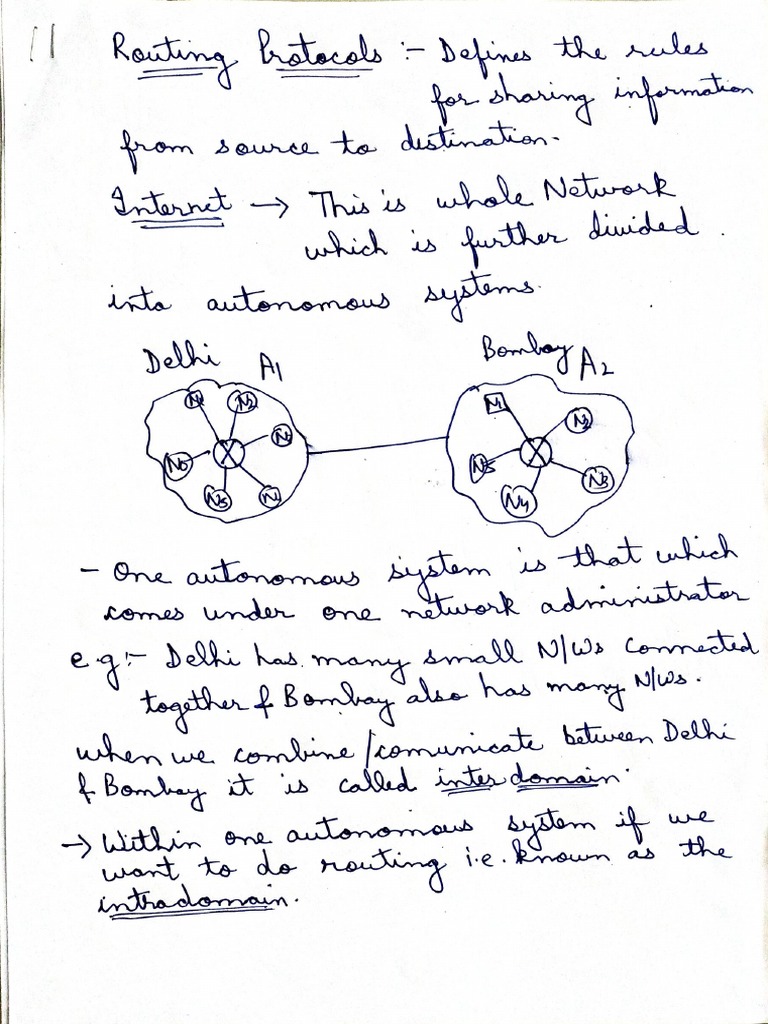 11
Routing Protocols :- Defines the rules
for sharing information
from source to destination.
Internet → This is whole Network
which is further divided
into autonomous systems.
Delhi A1
Bombay A2
N1 N2
N5
N1
N2
N5 N3
N4
- One autonomous system is that which
comes under one network administrator
e.g:- Delhi has many small N/Ws connected
together & Bombay also has many N/Ws.
when we combine/comunicate between Delhi
& Bombay it is called inter domain.
→ Within one autonomous system if we
want to do routing i.e. known as the
intradomain.